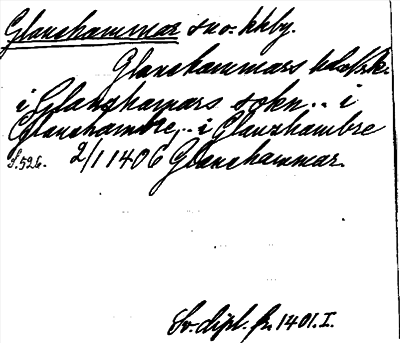 Glanshammar sn o. khby.
Glanshammars
i Glanzhamars sokn .. i
Glanshambre, .. i Glanzhambre
S. 526. 2/1 1406 Glanshammar.
Sv. dipl. fr. 1401. I.